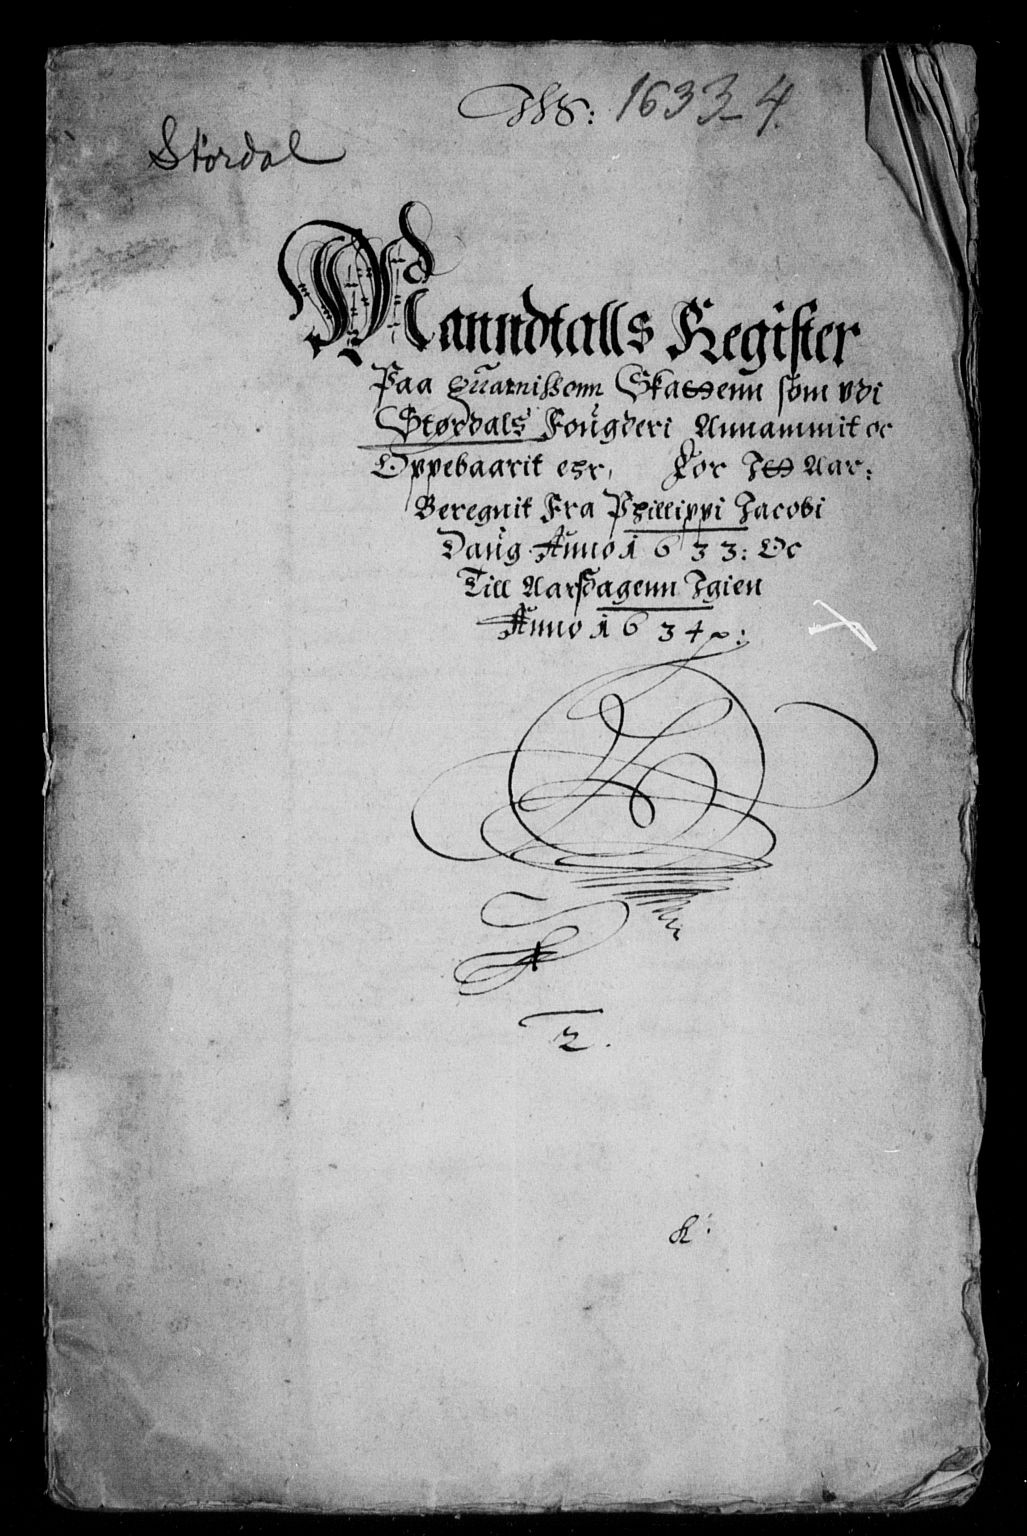 IHS: 1633-4.
Stordal
Manndtalls Register
Paa Quarnissenn Skattenn som vdi
Størdals Fougderi Annammit oc
Oppebaarit ehr, For Itt Aar:
Beregnit Fra Phillippi Jacobi
Daug Anno 1633: Oc
Till Aarsdagenn Igien
Anno 1634
2.